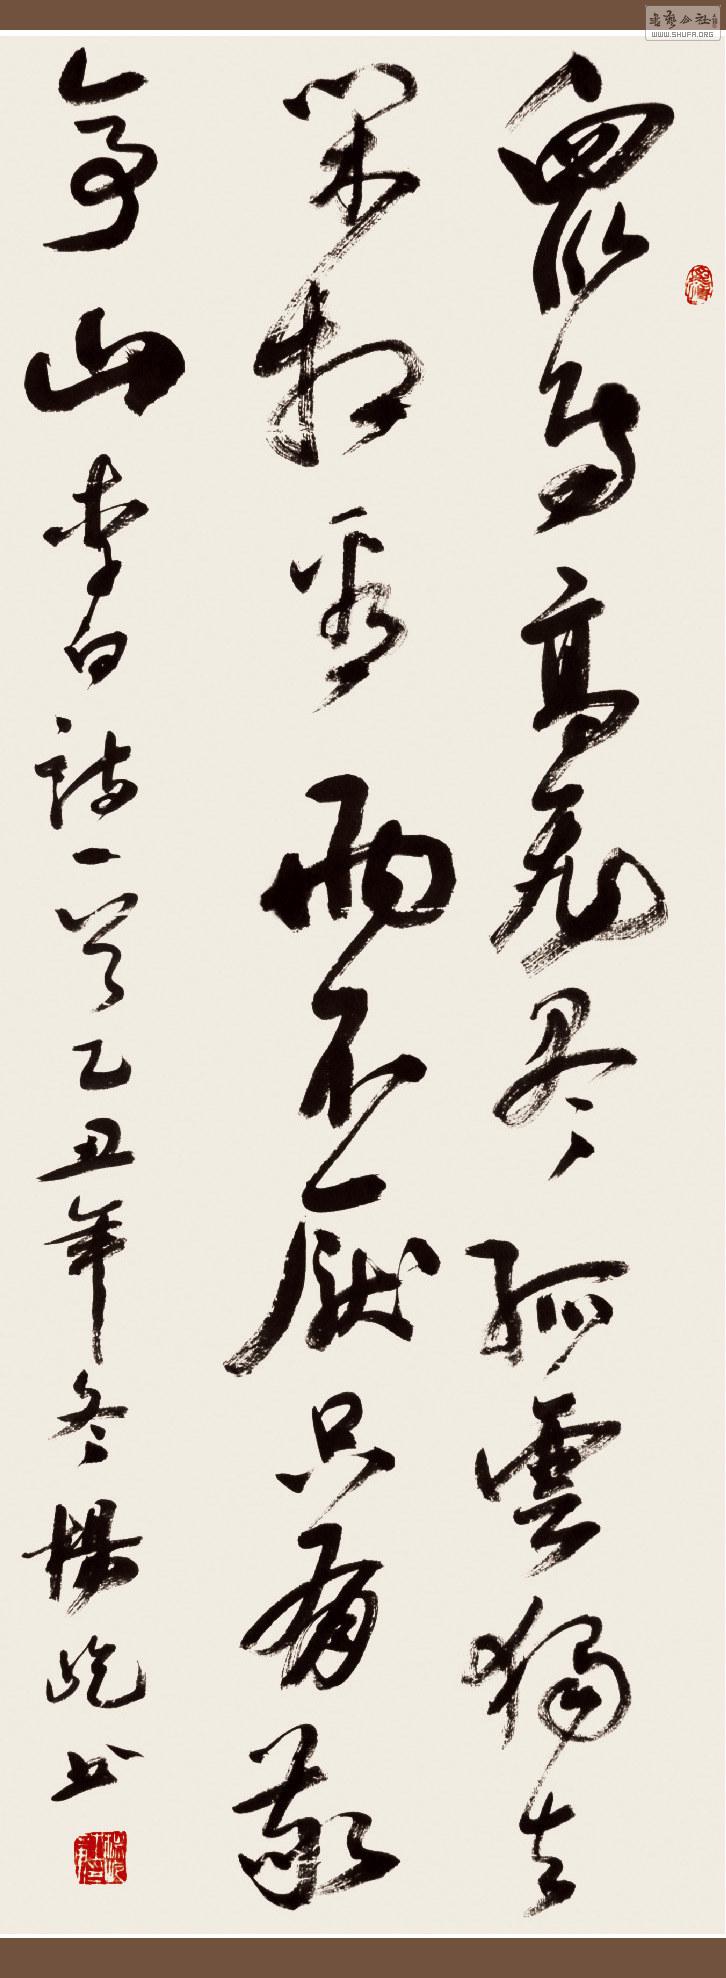 眾鳥高飛尽孤雲獨去
閑相看兩不厭只有敬
亭山李白詩一首乙丑年冬楊屹書
書藝公社
WWW.SHUFA.ORG